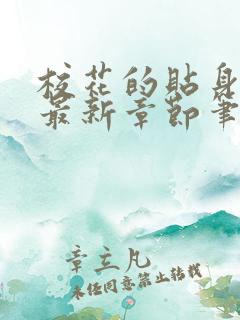 校花的贴身
最新章节笔
章立凡
未经同意禁止转载